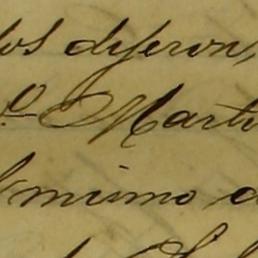 los dijeron,
º Marti
mismo d